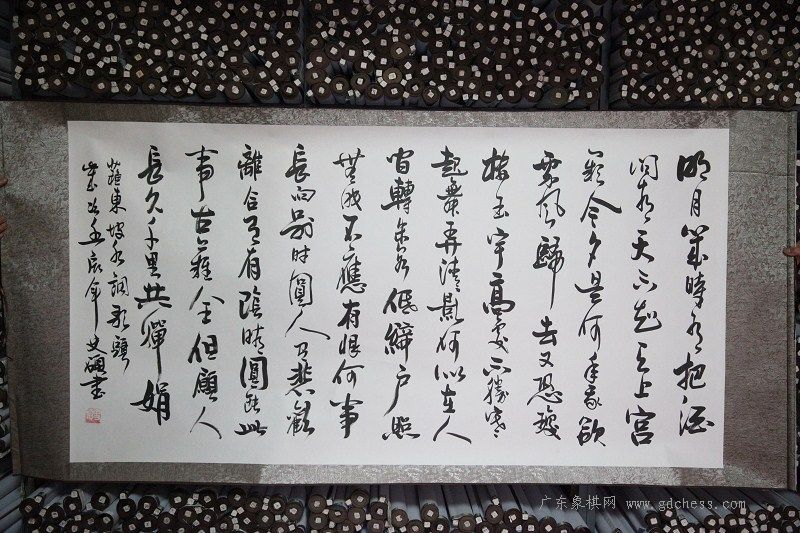 明月幾時有把酒
問青天不知天上宮
闕今夕是何年我欲
乘風歸去又恐瓊
樓玉宇高處不勝寒
起舞弄清影何似在人
間轉朱閣低綺戶照
無眠不應有恨何事
長向別時圓人有悲歡
離合月有陰晴圓缺此
事古難全但願人
長久千里共嬋娟
蘇東坡水調歌頭
歲次壬辰年書
广东象棋网 www.gdchess.com